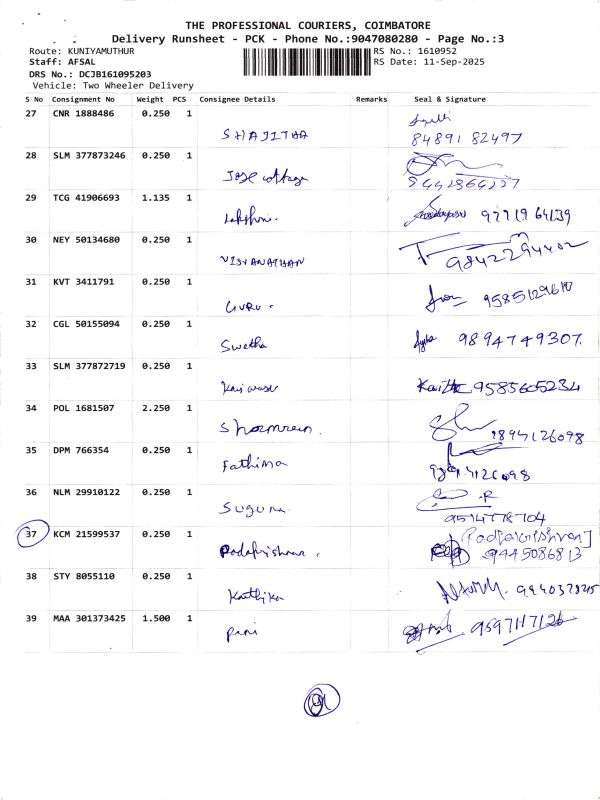 THE PROFESSIONAL COURIERS, COIMBATORE
Delivery Runsheet - PCK - Phone No.:9047080280 - Page No.:3
Route: KUNIYAMUTHUR RS No.: 1610952
Staff: AFSAL RS Date: 11-Sep-2025
DRS No.: DCJB161095203
Vehicle: Two Wheeler Delivery
S No Consignment No Weight PCS Consignee Details Remarks Seal & Signature
27 CNR 1888486 0.250 1
SHAJITHA 84891 82497
28 SLM 377873246 0.250 1
Jose cottage
29 TCG 41906693 1.135 1
Lakshmi.
30 NEY 50134680 0.250 1
VISVANATHAN 9842294402
31 KVT 3411791 0.250 1
GURU. 9585129610
32 CGL 50155094 0.250 1
Swetha 9894749307.
33 SLM 377872719 0.250 1
9585605234
34 POL 1681507 2.250 1
9894126098
35 DPM 766354 0.250 1
Fathima
36 NLM 29910122 0.250 1
Suguna
37 KCM 21599537 0.250 1
9445086813
38 STY 8055110 0.250 1
Karthika
39 MAA 301373425 1.500 1
9597117126